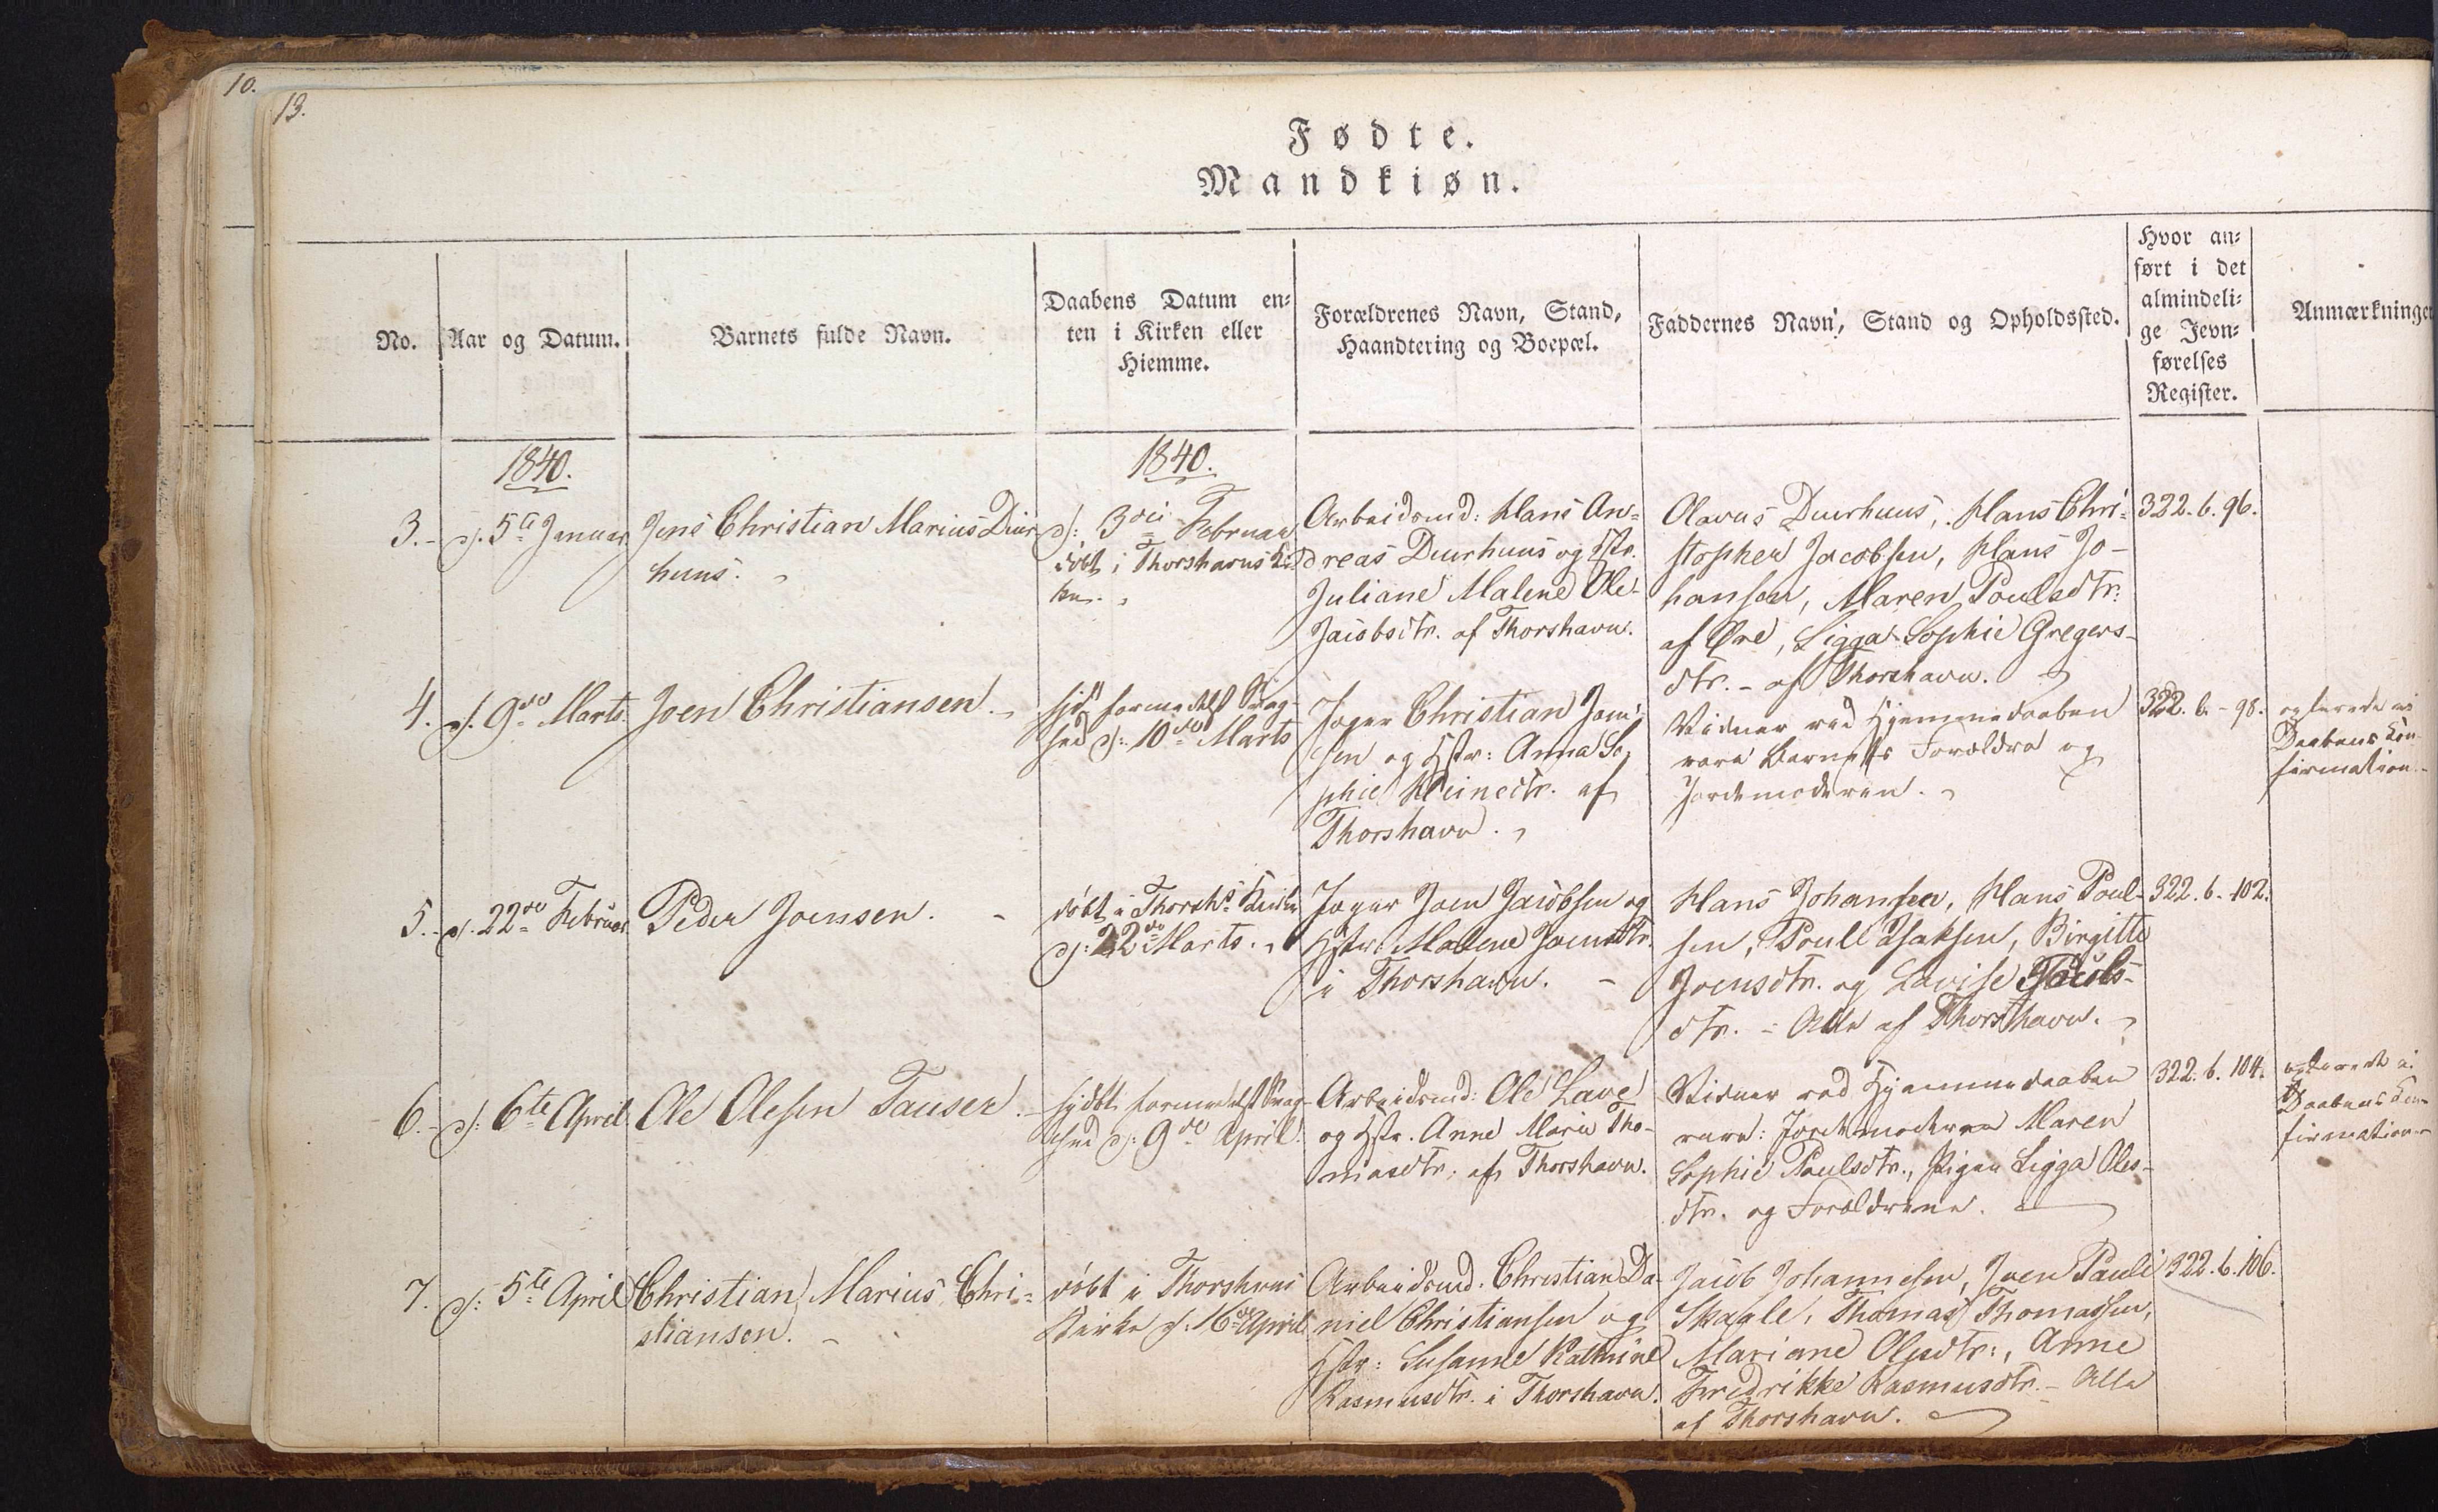 10.
13.
Fødte.
Mandkiøn.
No.
Aar og Datum.
Barnets fulde Navn.
Daabens Datum en-
ten i Kirken eller
Hiemme.
Forældrenes Navn, Stand,
Haandtering og Boepæl.
Faddernes Navn, Stand og Opholdssted.
Hvor an-
ført i det
almindeli-
ge Jevn-
førelses
Register.
Anmærkninger
1840.
1840.
3.
d. 5te Januar
Jens Christian Marius Duur-
huus.
d: 3die Februar
døbt i Thorshavns Kir-
ke.
Arbeidsmd: Hans An-
dreas Duurhuus og Hstr.
Juliane Malene Ole
Jacobsdtr. af Thorshavn.
Olavus Duurhuus, Hans Chri-
stopher Jacobsen, Hans Jo-
hansen, Maren Poulsdtr.
af Øre, Sigga Sophie Gregers-
dtr. - af Thorshavn.
322. b. 96.
4.
d. 9de Marts
Joen Christiansen.
hjd. formedelst Svag-
hed d: 10de Marts
Jæger Christian Joen-
sen og Hstr: Anna So-
phie Heinedtr. af
Thorshavn.
Vidner ved Hjemmedaaben
vare Barnets Forældre og
Jordemoderen.
322. b. - 98.
Daabens Con-
firmation.
5.
d. 22de Februar
Peder Joensen.
døbt i Thorsh. Kirke
d: 22de Marts.
Jæger Joen Jacobsen og
Hstr: Malene Joensdtr.
i Thorshavn.
Hans Johansen, Hans Poul-
sen, Poull Isaksen, Birgitte
Joensdtr. og Lovise Pouls-
dtr. - Alle af Thorshavn.
322. b. - 102.
6.
d: 6te April
Ole Olesen Tausen.
hjdøbt formedelst Svag-
hed d: 9de April.
Arbeidsmd: Ole Lave
og Hstr. Anne Marie Tho-
masdtr. af Thorshavn.
Vidner ved Hjemmedaaben
vare: Jordemoderen Maren
Sophie Poulsdtr., Pigen Sigga Oles-
dtr. og Forældrene.
322. b. 104.
Daabens Con-
firmation
7.
d: 5te April
Christian Marius Chri-
stiansen.
døbt i Thorshavns
Kirke d: 16de April
Arbeidsmd. Christian Da-
niel Christiansen og
Hstr: Susanne Kathrine
Rasmusdtr. i Thorshavn.
Jacob Johannesen, Joen Pauli
Skaale, Thomas Thomassen,
Mariane Olesdtr:, Anne
Fredrikke Rasmusdtr. - Alle
af Thorshavn.
322. b. 106.